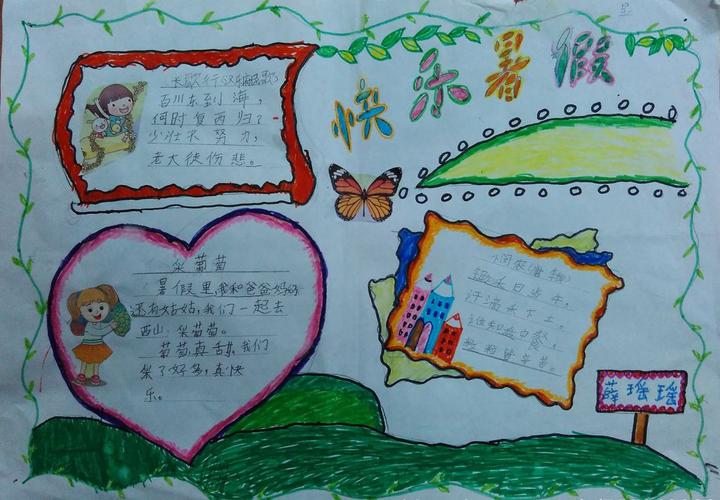 快乐暑假
长歌行(汉乐府民歌)
百川东到海,
何时复西归?
少壮不努力,
老大徒伤悲。
采葡萄
暑假里,我和爸爸妈妈
还有姑姑,我们一起去
西山采葡萄。
葡萄真甜,我们
采了好多,真快
乐。
锄禾日当午,
汗滴禾下土。
谁知盘中餐,
粒粒皆辛苦。
薛瑶瑶